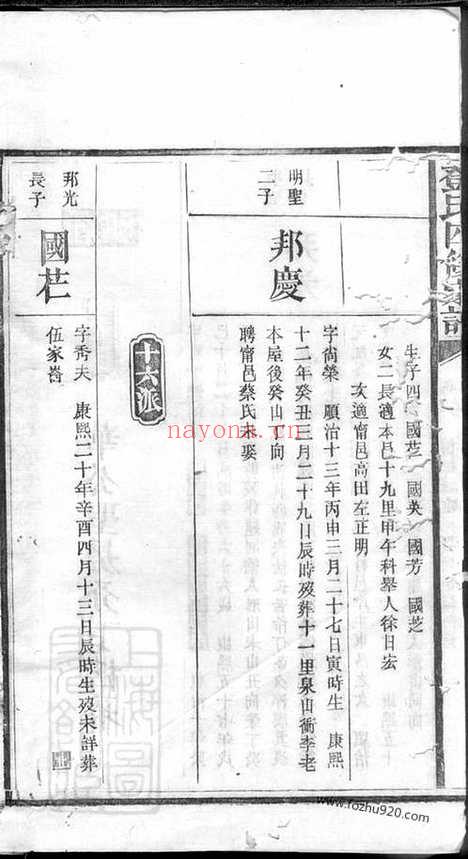 鄧氏四續家譜
生子四 國芒 國英 國芳 國芝
女二長適本邑十九里甲午科舉人徐日宏
次適甯邑高田左正明
明聖
二子
邦慶
字尚榮 順治十三年丙申三月二十七日寅時生 康熙
十二年癸丑三月二十九日辰時歿葬十一里泉田衝李老
本屋後癸山丁向
聘甯邑蔡氏未娶
十六派
邦光
長子
國芒
字秀夫 康熙二十年辛酉四月十三日辰時生歿未詳葬
伍家嵛
nayona.cn
www.fozhu920.com